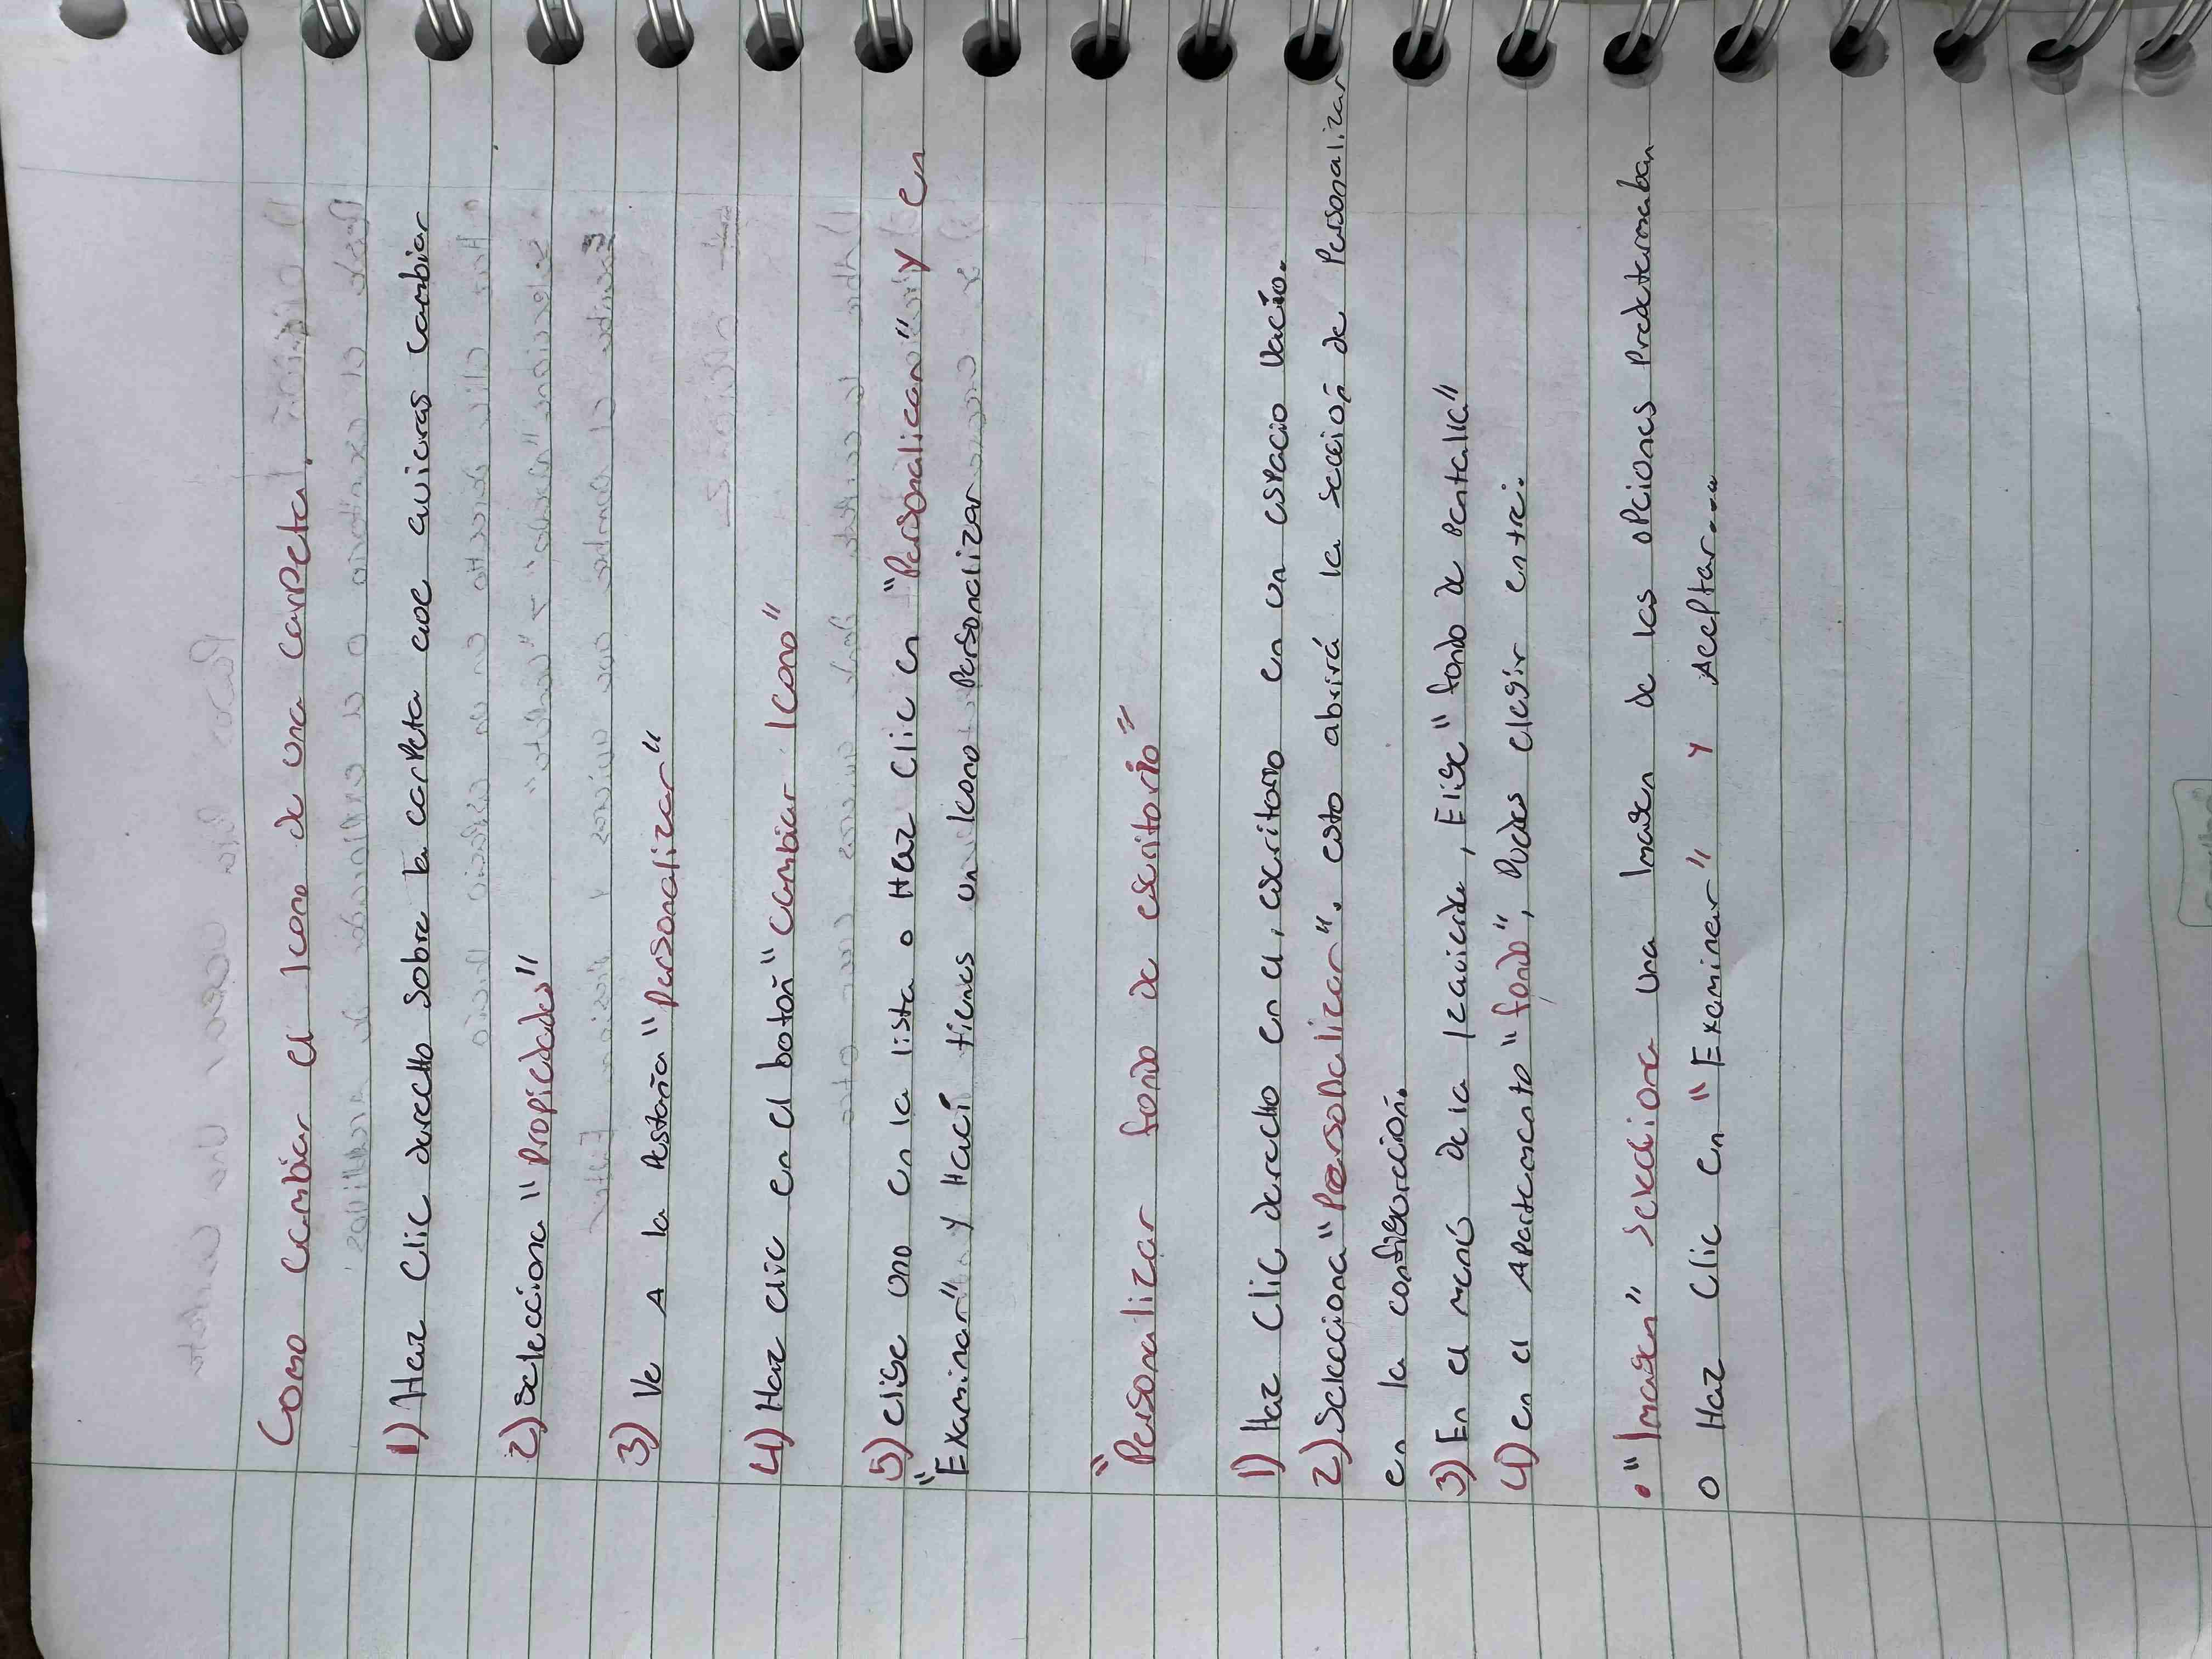 Como cambiar el Icono de una carpeta.
1) Haz Clic derecho sobre la carpeta que quieras cambiar
2) selecciona "Propiedades"
3) Ve A la Pestaña "Personalizar"
4) Haz clic en el botón "cambiar Icono"
5) elige uno en la lista o Haz Clic en "Personalican" y en
"Examinar" y Haci tienes un Icono Personalizar
"Personalizar fondo de escritorio"
1) Haz Clic derecho en el, escritorio en un espacio vacío.
2) Selecciona "Personalizar". esto abrirá la sección de Personalizar
en la configuración.
3) En el menú de la Izquierda, Elige "fondo de pantalla"
4) en el Apartamento "fondo", Puedes elegir entre:
• "Imagen" seleccione una Imagen de las opciones Predetermaban
o Haz Clic en "Examinar" y Aceptar....